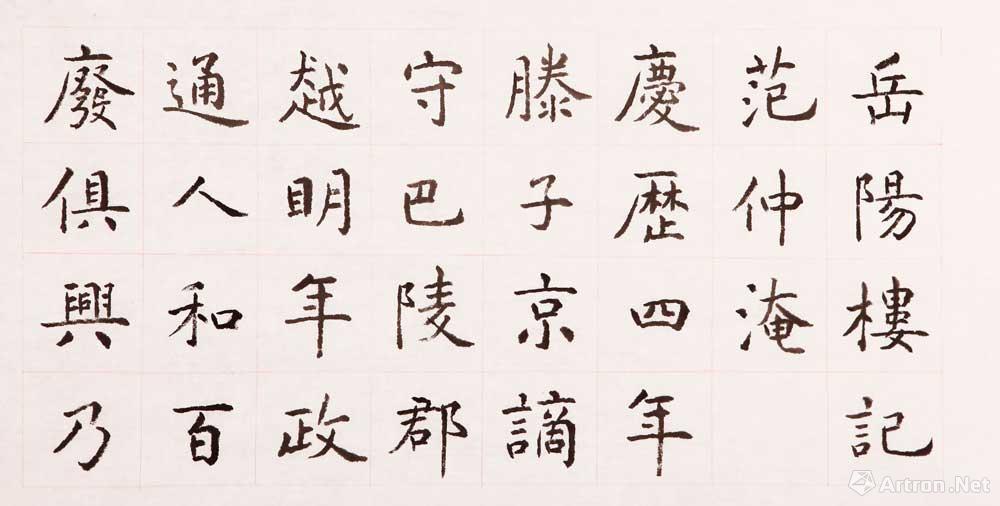 岳陽樓記
范仲淹
慶歷四年
滕子京謫
守巴陵郡
越明年政
通人和百
廢俱興乃
Artron.Net